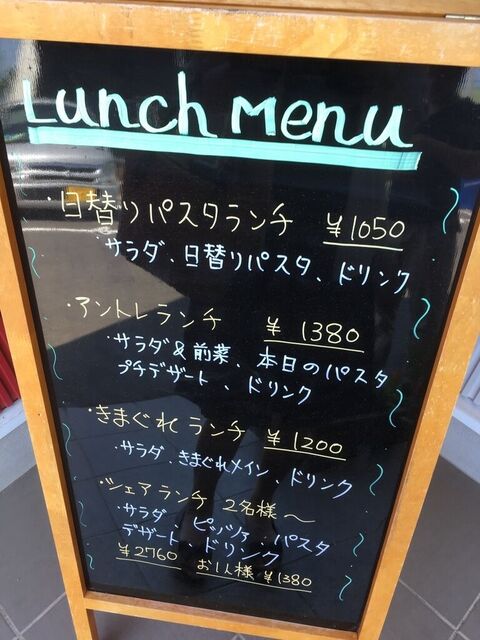 Lunch Menu
・日替りパスタランチ ¥1050
サラダ、日替りパスタ、ドリンク
・アントレランチ ¥1380
・サラダ&前菜、本日のパスタ
プチデザート、ドリンク
・きまぐれランチ ¥1200
・サラダ、きまぐれメイン、ドリンク
・シェアランチ 2名様〜
・サラダ、ピッツァ、パスタ
デザート、ドリンク
¥2760 お1人様 ¥1380